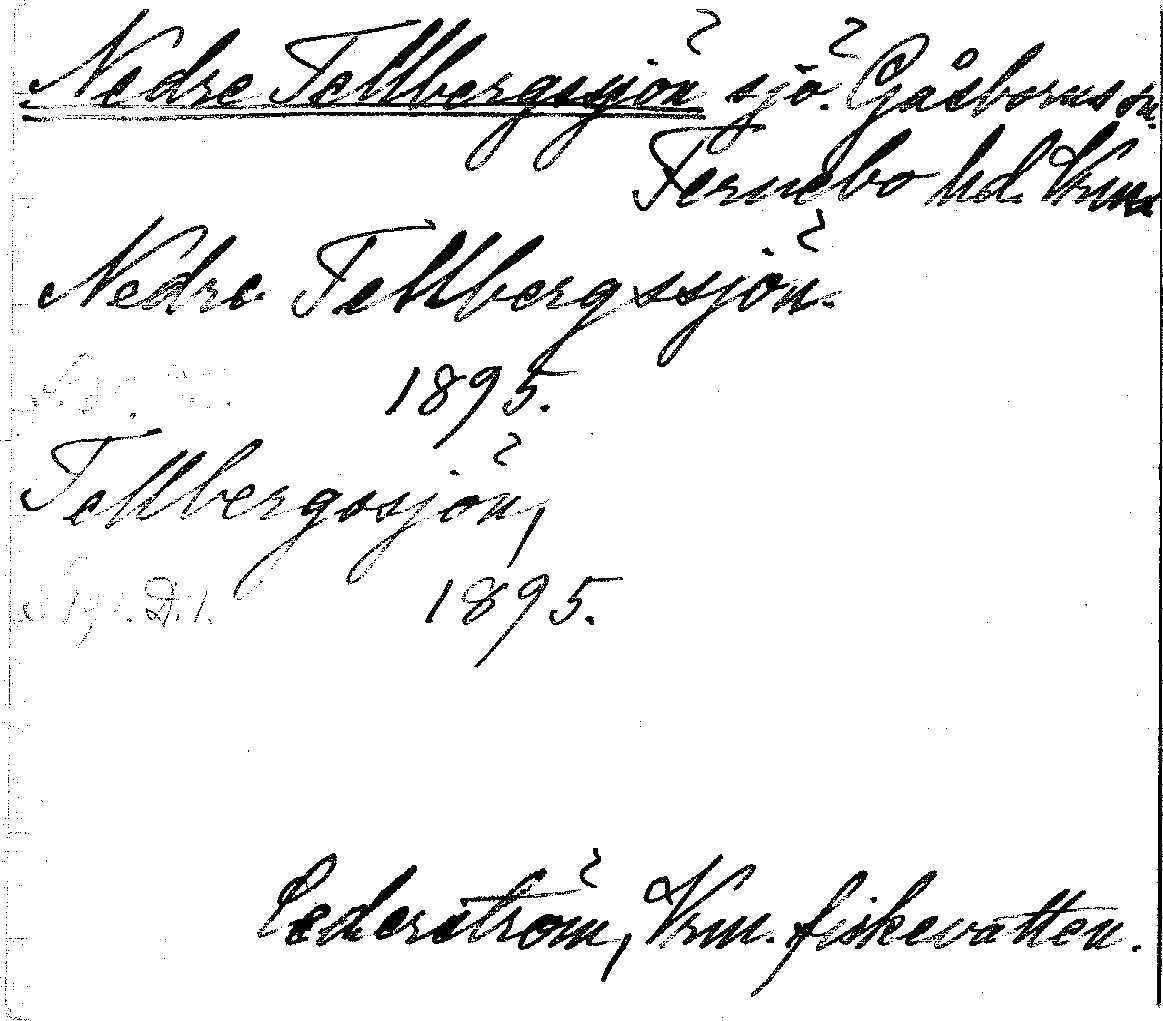 Nedre Tellbergssjön sjö. Gåsborns sn.
Fernebo hd. Vrml.
Nedre Tellbergssjön.
1895.
Tellbergssjön,
1895.
Cederström, Vrm. fiskevatten.